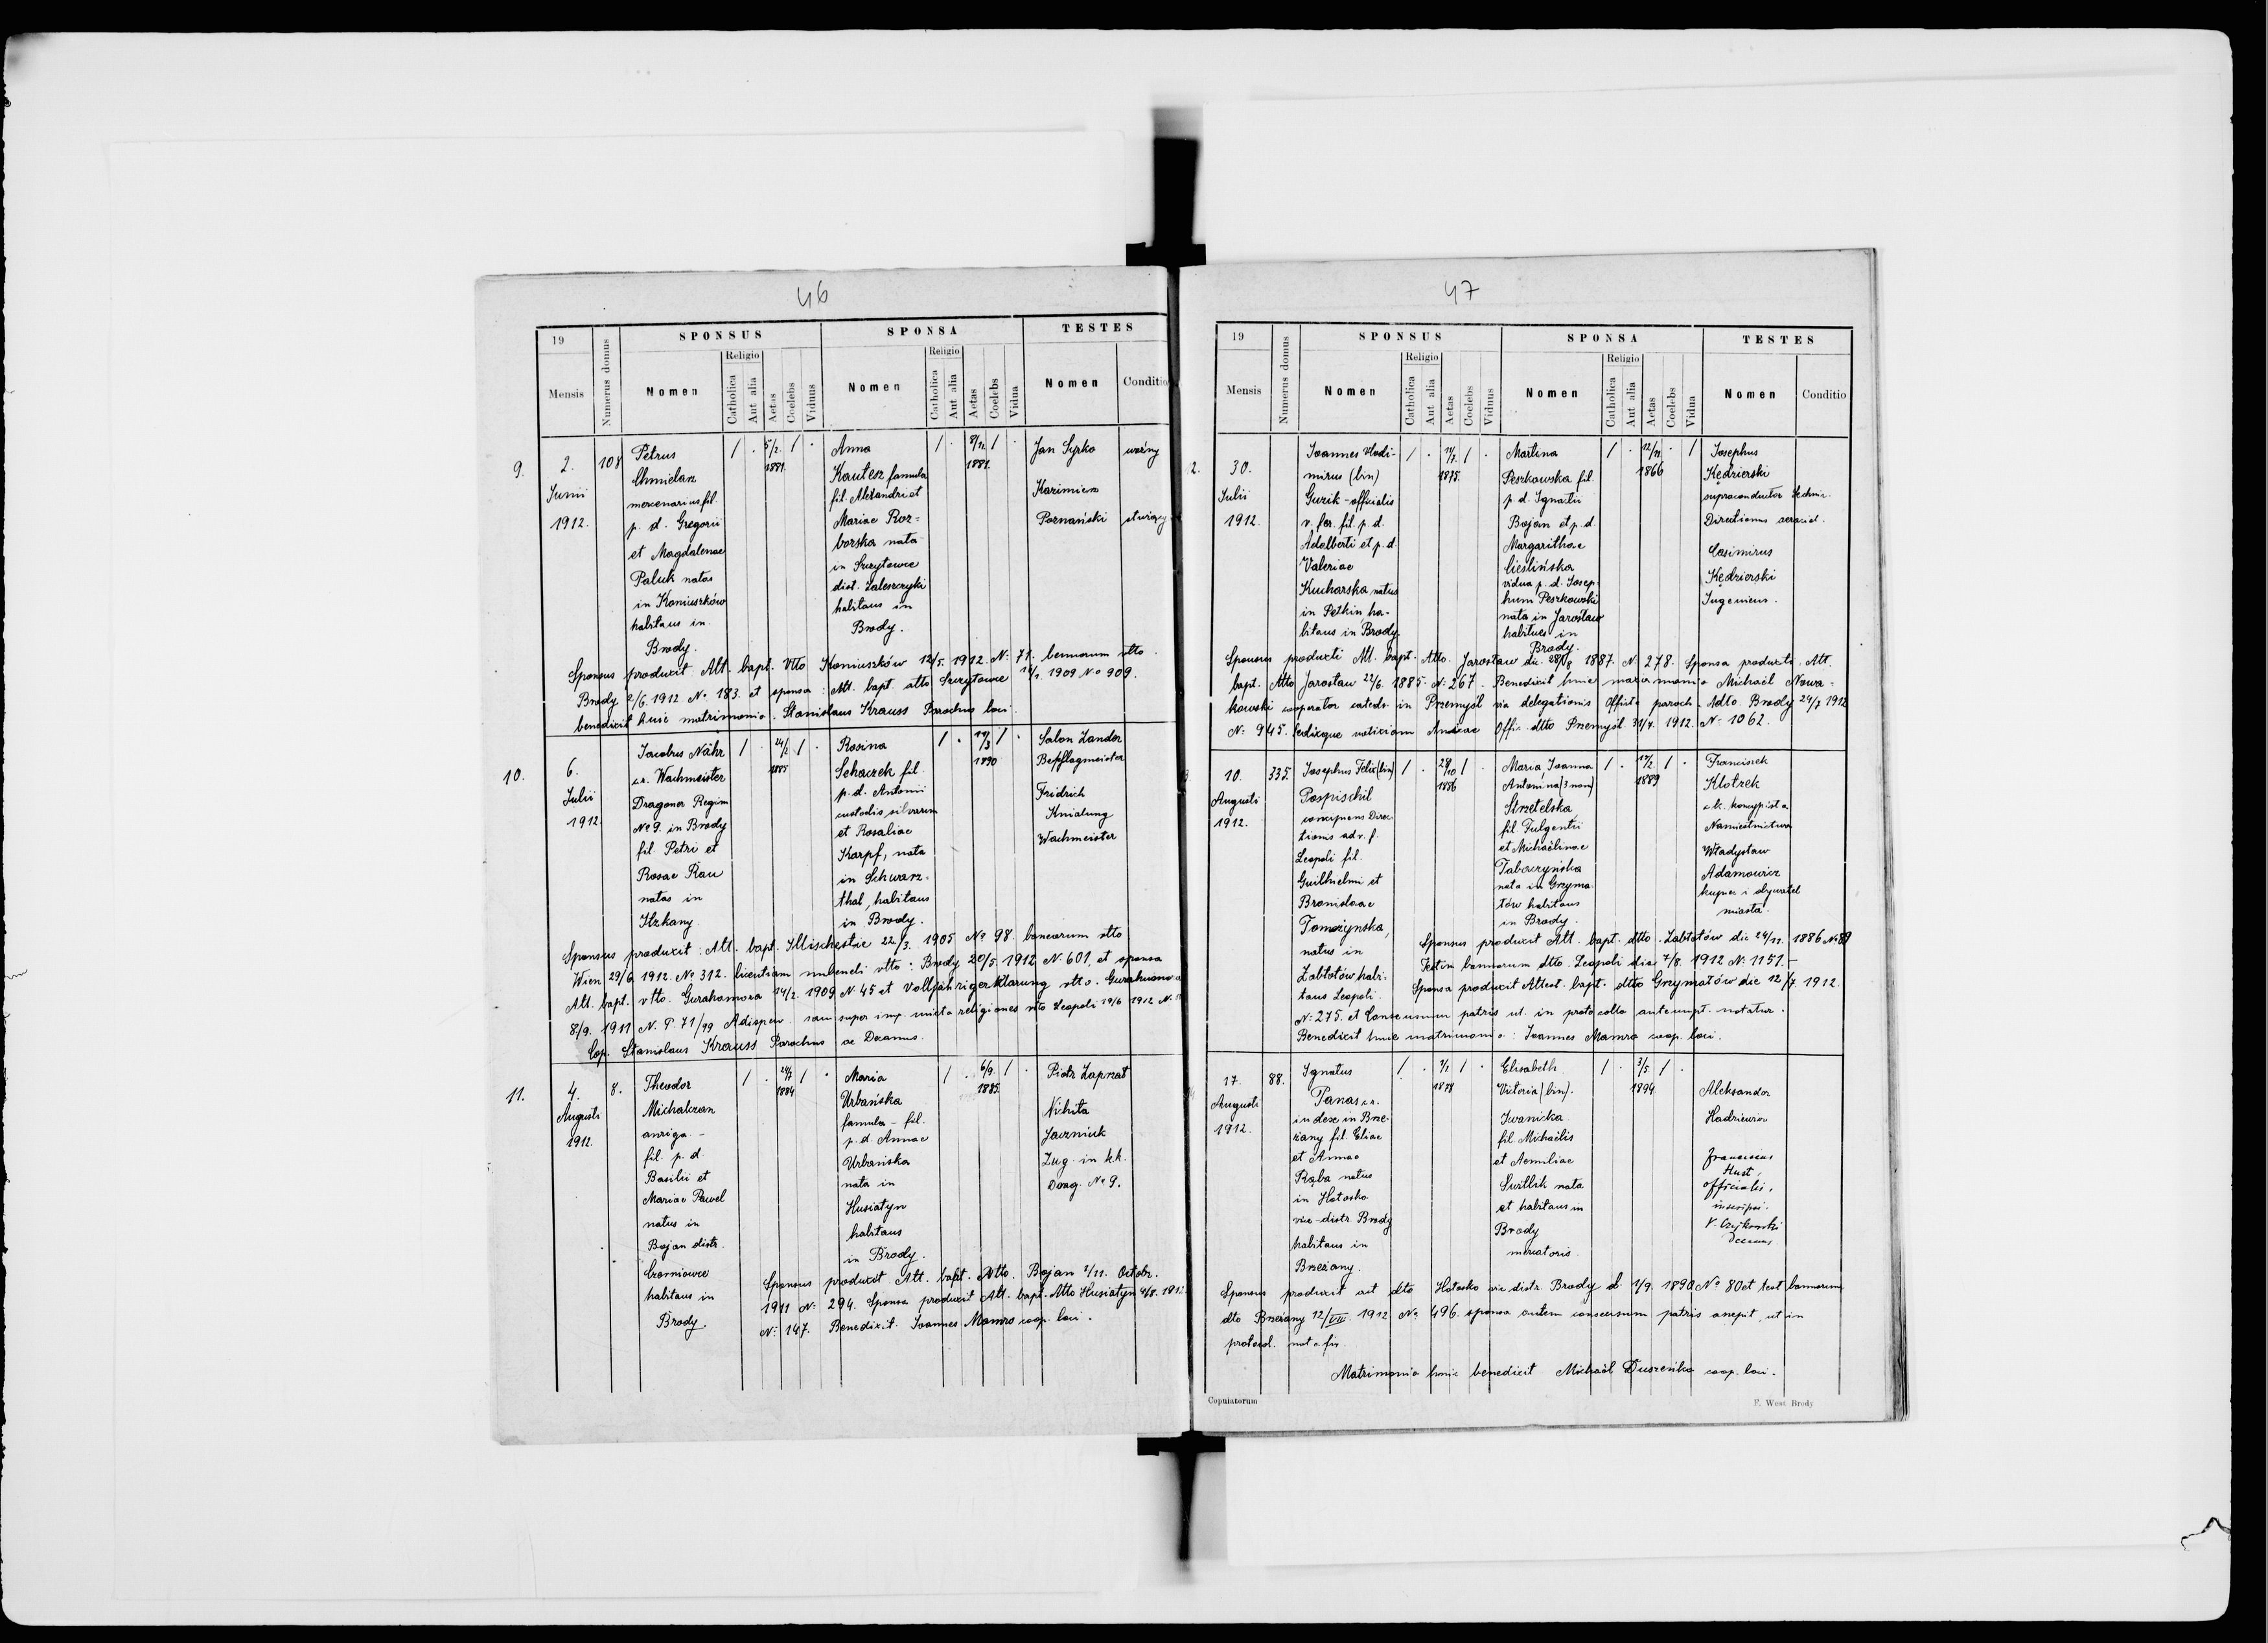 46
19
Mensis
Numerus domus
SPONSUS
Nomen
Religio
Catholica
Aut alia
Aetas
Coelebs
Viduus
SPONSA
Nomen
Religio
Catholica
Aut alia
Aetas
Coelebs
Vidua
TESTES
Nomen
Conditio
9.
2.
Junii
1912.
108
Petrus
Chmielarz
mercenarius fil.
p. d. Gregorii
et Magdalenae
Paluk natus
in Koniuszków
habitans in
Brody.
/ . 5/2. / .
1881.
Anna
famula
fil. Alexandri et
Mariae Roz=
borska nata
in Szczytowce
dist. Zaleszczyki
habitans in
Brody.
/ . 8/12. / .
1881.
Jan Syrko
woźny
Kazimierz
Poznański
Sponsus produxit Att. bapt. dtto Koniuszków 12/5. 1912. N: 71. bannorum dtto
Brody 2/6. 1912 No 183. et sponsa: Att. bapt. dtto Szczytowce 1909 No 909.
benedixit huic matrimonio. Stanislaus Krauss Parochus loci.
10.
6.
Julii
1912.
Jacobus Nähr
Wachmeister
Dragoner Regim
No 9. in Brody
fil. Petri et
Rosae Rau
natus in
Itzkany
/ . 24/2. / .
1885.
Rosina
fil.
p. d. Antonii
custodis silvarum
et Rosaliae
Karpf, nata
in Schwarz=
thal, habitans
in Brody.
/ . / .
1890
Salon Zandor
Fridrich
Wachmeister
Sponsus produxit: Att. bapt. Illischestie 22/3. 1905 No 98. bannorum dtto
Wien 29/6 1912. No 312. licentiam nubendi dtto: Brody 20/5 1912 N. 601, et sponsa
Att. bapt. dtto. Gurahumora 14/2. 1909 N. 45 et Volljährigerklärung dtto. Gurahumora
8/9. 1911 N. P. 71/99 A dispen. super imp. mixta religiones dtto Leopoli 19/6 1912 N.
Cop. Stanislaus Krauss Parochus ac Decanus.
11.
4.
Augusti
1912.
8.
Theodor
Michalczan
auriga -
fil. p. d.
Basilii et
Mariae Pawel
natus in
Bojan distr.
Czerniowce
habitans in
Brody.
/ . 24/7 / .
1884
Maria
Urbańska
famula - fil.
p. d. Annae
Urbańska
nata in
Husiatyn
habitans
in Brody.
/ . 6/9. / .
1885.
Piotr Zaprzat
Nichita
Jaczniuk
Zug. in k.k.
Drag. No 9.
Sponsus produxit Att. bapt. dtto. Bojan 2/11. Octobr.
1911 N: 294. Sponsa produxit Att. bapt. dtto Husiatyn 4/8. 1912
N: 147. Benedixit Joannes Mamro coop. loci.
47
19
Mensis
Numerus domus
SPONSUS
Nomen
Religio
Catholica
Aut alia
Aetas
Coelebs
Viduus
SPONSA
Nomen
Religio
Catholica
Aut alia
Aetas
Coelebs
Vidua
TESTES
Nomen
Conditio
2.
30.
Julii
1912.
Joannes Vlodi-
mirus (bin)
Guzik - officialis
v. fer. fil. p. d.
Adalberti et p. d.
Valeriae
Kucharska natus
in Petkin ha-
bitans in Brody.
/ . 11/7. / .
1875.
Martina
Peszkowska fil.
p. d. Ignatii
Bojan et p. d.
Margarithae
Cieślińska
vidua p. d. Josep-
hum Peszkowski
nata in Jarosław
habitues in
Brody.
/ . 12/11. . /
1866
Josephus
Kędzierski
Casimirus
Kędzierski
Ingenieur.
Sponsus producti Att. bapt. dtto. Jarosław die 28/8 1887. N. 278. Sponsa producta Att.
bapt. dtto Jarosław 22/6. 1885. N: 267. Benedixit huic matrimonio Michaël Nowa-
kowski cooperator cated. in Przemyśl via delegationis Offi paroch. ddto. Brody 24/7 1912
N: 945. Offic. dtto Przemyśl 1912. N: 1062.
10.
Augusti
1912.
335.
Josephus Felix (bin)
Pospischil
tionis adv. f.
Leopoli fil.
Guilhielmi et
Bronislaae
Tomożynska,
natus in
Zabłotów habi-
tans Leopoli.
/ . 28/10 / .
1886
Maria, Joanna
Antonina (3 nom)
Strzetelska
fil. Fulgentii
et Michaëlinae
nata in Grzyma
łów habitans
in Brody.
/ . 17/2. / .
1889
Franciszek
Klotzek
c.k. koncypista
Namiestnictwa
Władysław
Adamowicz
kupiec i obywatel
miasta.
Sponsus produxit Att. bapt. dtto. Zabłotów die 24/11. 1886 No 89
Testim bannorum dtto. Leopoli die 7/8. 1912 N: 1151. -
Sponsa produxit Attest. bapt. dtto Grzymałów die 12/7. 1912.
N: 275. et Consensum patris ut in protocollo antenupt. notatur.
Benedixit huic matrimonio: Joannes Mamro coop. loci.
17.
Augusti
1912.
88.
Ignatus
Panas
iudex in Brze-
żany fil. Eliae
et Annae
Rąba natus
in Hołosko
distr. Brody
habitans in
Brzeżany.
/ . 2/2 / .
1878
Elisabeth
Victoria (bin).
Iwanicka
fil. Michaëlis
et Aemiliae
Switlik nata
et habitans in
Brody
mercatoris.
/ . 3/5. / .
1894
Aleksander
Hadziewicz
Franciscus
Hust,
officialis,
V. Czajkowski
Sponsus produxit act dto Hołosko distr. Brody d. 1/9. 1890 No 80 et test bannorum
dto Brzeżany 12/VIII. 1912 No 496. sponsa autem consensum patris accepit, ut in
protocol.
Matrimonio huic benedixit Michaël Duszeńko coop. loci.
Copulatorum
F. West Brody